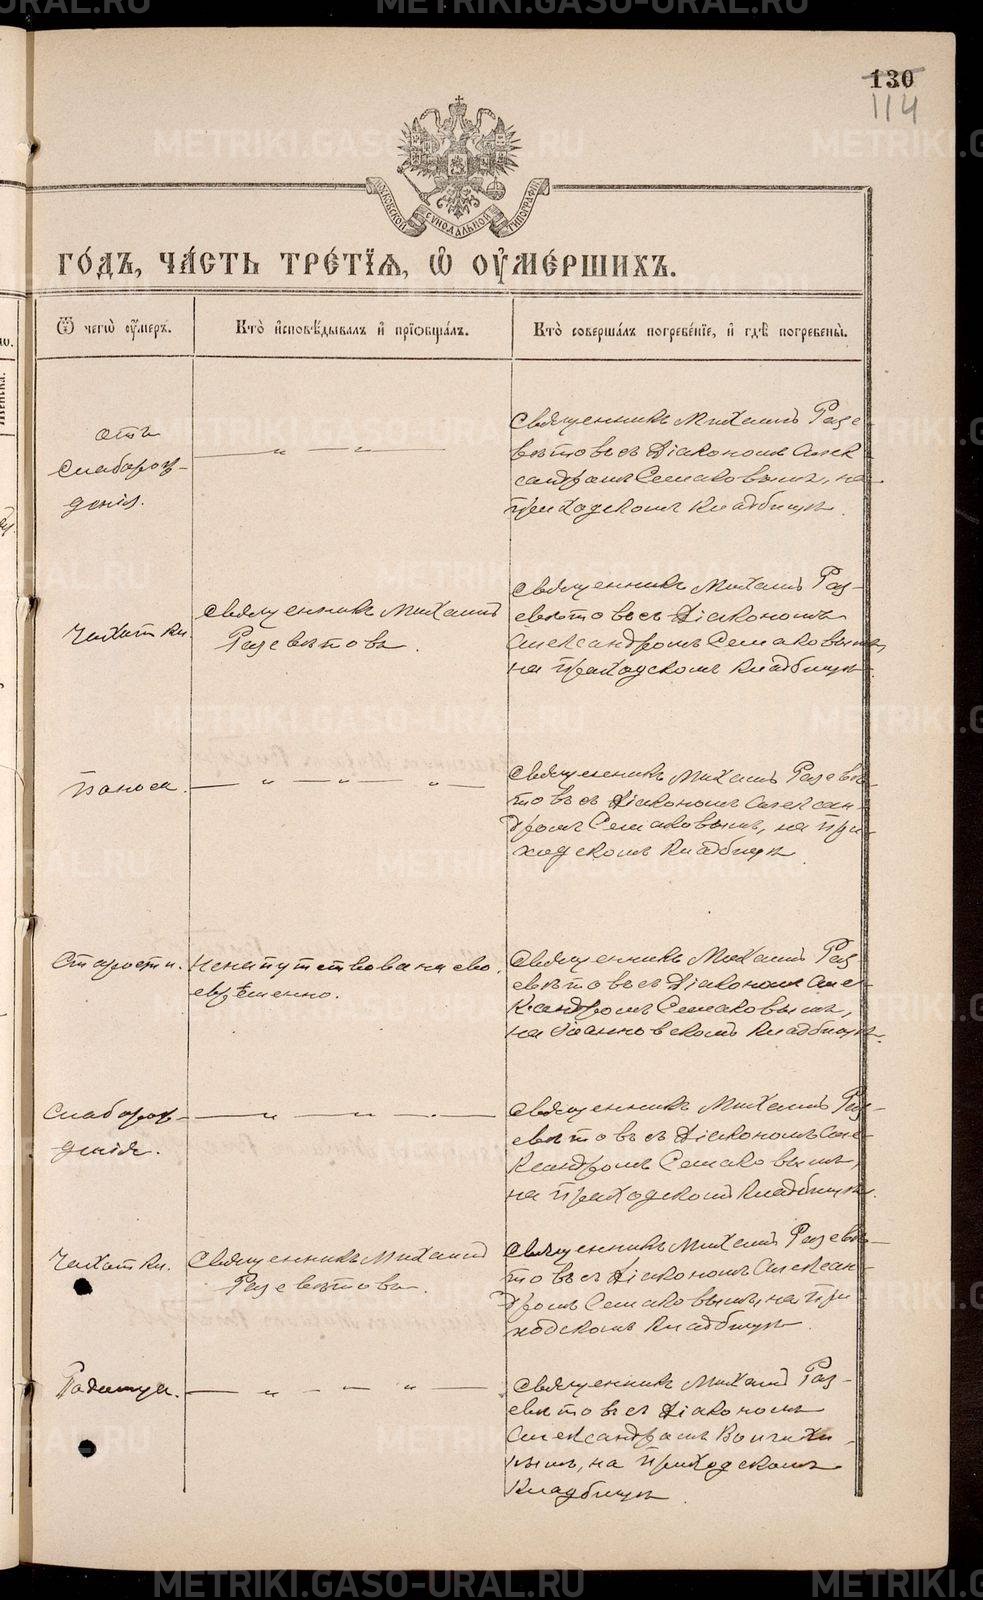 130
114
МОСКОВСКОЙ СѴНОДАЛЬНОЙ ТИПОГРАФІИ
ГО́ДЪ, ЧА́СТЬ ТРЕ́ТІѦ, Ѡ҆ ОУ҆МЕ́РШИХЪ.
Ѿ чегѡ̀ оу҆́меръ.
Кто̀ и҆сповѣ́дывалъ и҆ прїѡбща́лъ.
Кто̀ соверша́лъ погребе́нїе, и҆ гдѣ̀ погребены̀.
отъ
слаборож-
денія.
— „ — „ —
Священникъ Михаилъ Разс-
вѣтовъ съ Діакономъ Алек
сандромъ Семаковымъ, на
Приходскомъ Кладбищѣ.
Чахотки.
Священникъ Михаилъ
Разсвѣтовъ.
Священникъ Михаилъ Раз-
свѣтовъ съ Діакономъ
Александромъ Семаковымъ,
на Приходскомъ Кладбищѣ.
Поноса.
— „ — „ — „ —
Священникъ Михаилъ Разсвѣ-
товъ съ Діакономъ Алексан-
дромъ Семаковымъ, на При-
ходскомъ Кладбищѣ.
Старости.
Не напутствована сво-
еврѣменно.
Священникъ Михаилъ Раз
свѣтовъ съ Діакономъ Алек-
сандромъ Семаковымъ,
на Іоанновскомъ Кладбищѣ.
Слаборож-
денія.
— „ — „ — . —
Священникъ Михаилъ Раз-
свѣтовъ съ Діакономъ Але-
ксандромъ Семаковымъ,
на Приходскомъ Кладбищѣ.
Чахотки.
Священникъ Михаилъ
Разсвѣтовъ.
Священникъ Михаилъ Разсвѣ-
товъ съ Діакономъ Алексан-
дромъ Семаковымъ, на При
ходскомъ Кладбищѣ.
Родимца.
— „ — „ — „ —
Священникъ Михаилъ Раз-
свѣтовъ съ Діакономъ
Александромъ
на Приходскомъ
Кладбищѣ.
METRIKI.GASO-URAL.RU